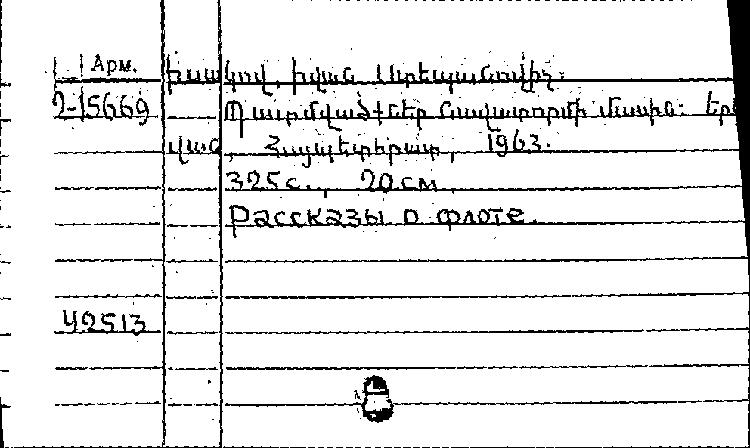 Арм. Իսակով, Իվան Ստեպանովիչ:
2-15669 Պատմվածքներ նավատորմի մասին: Երե
վան, Հայպետհրատ, 1963.
325с., 20см.
Рассказы о флоте.
42513